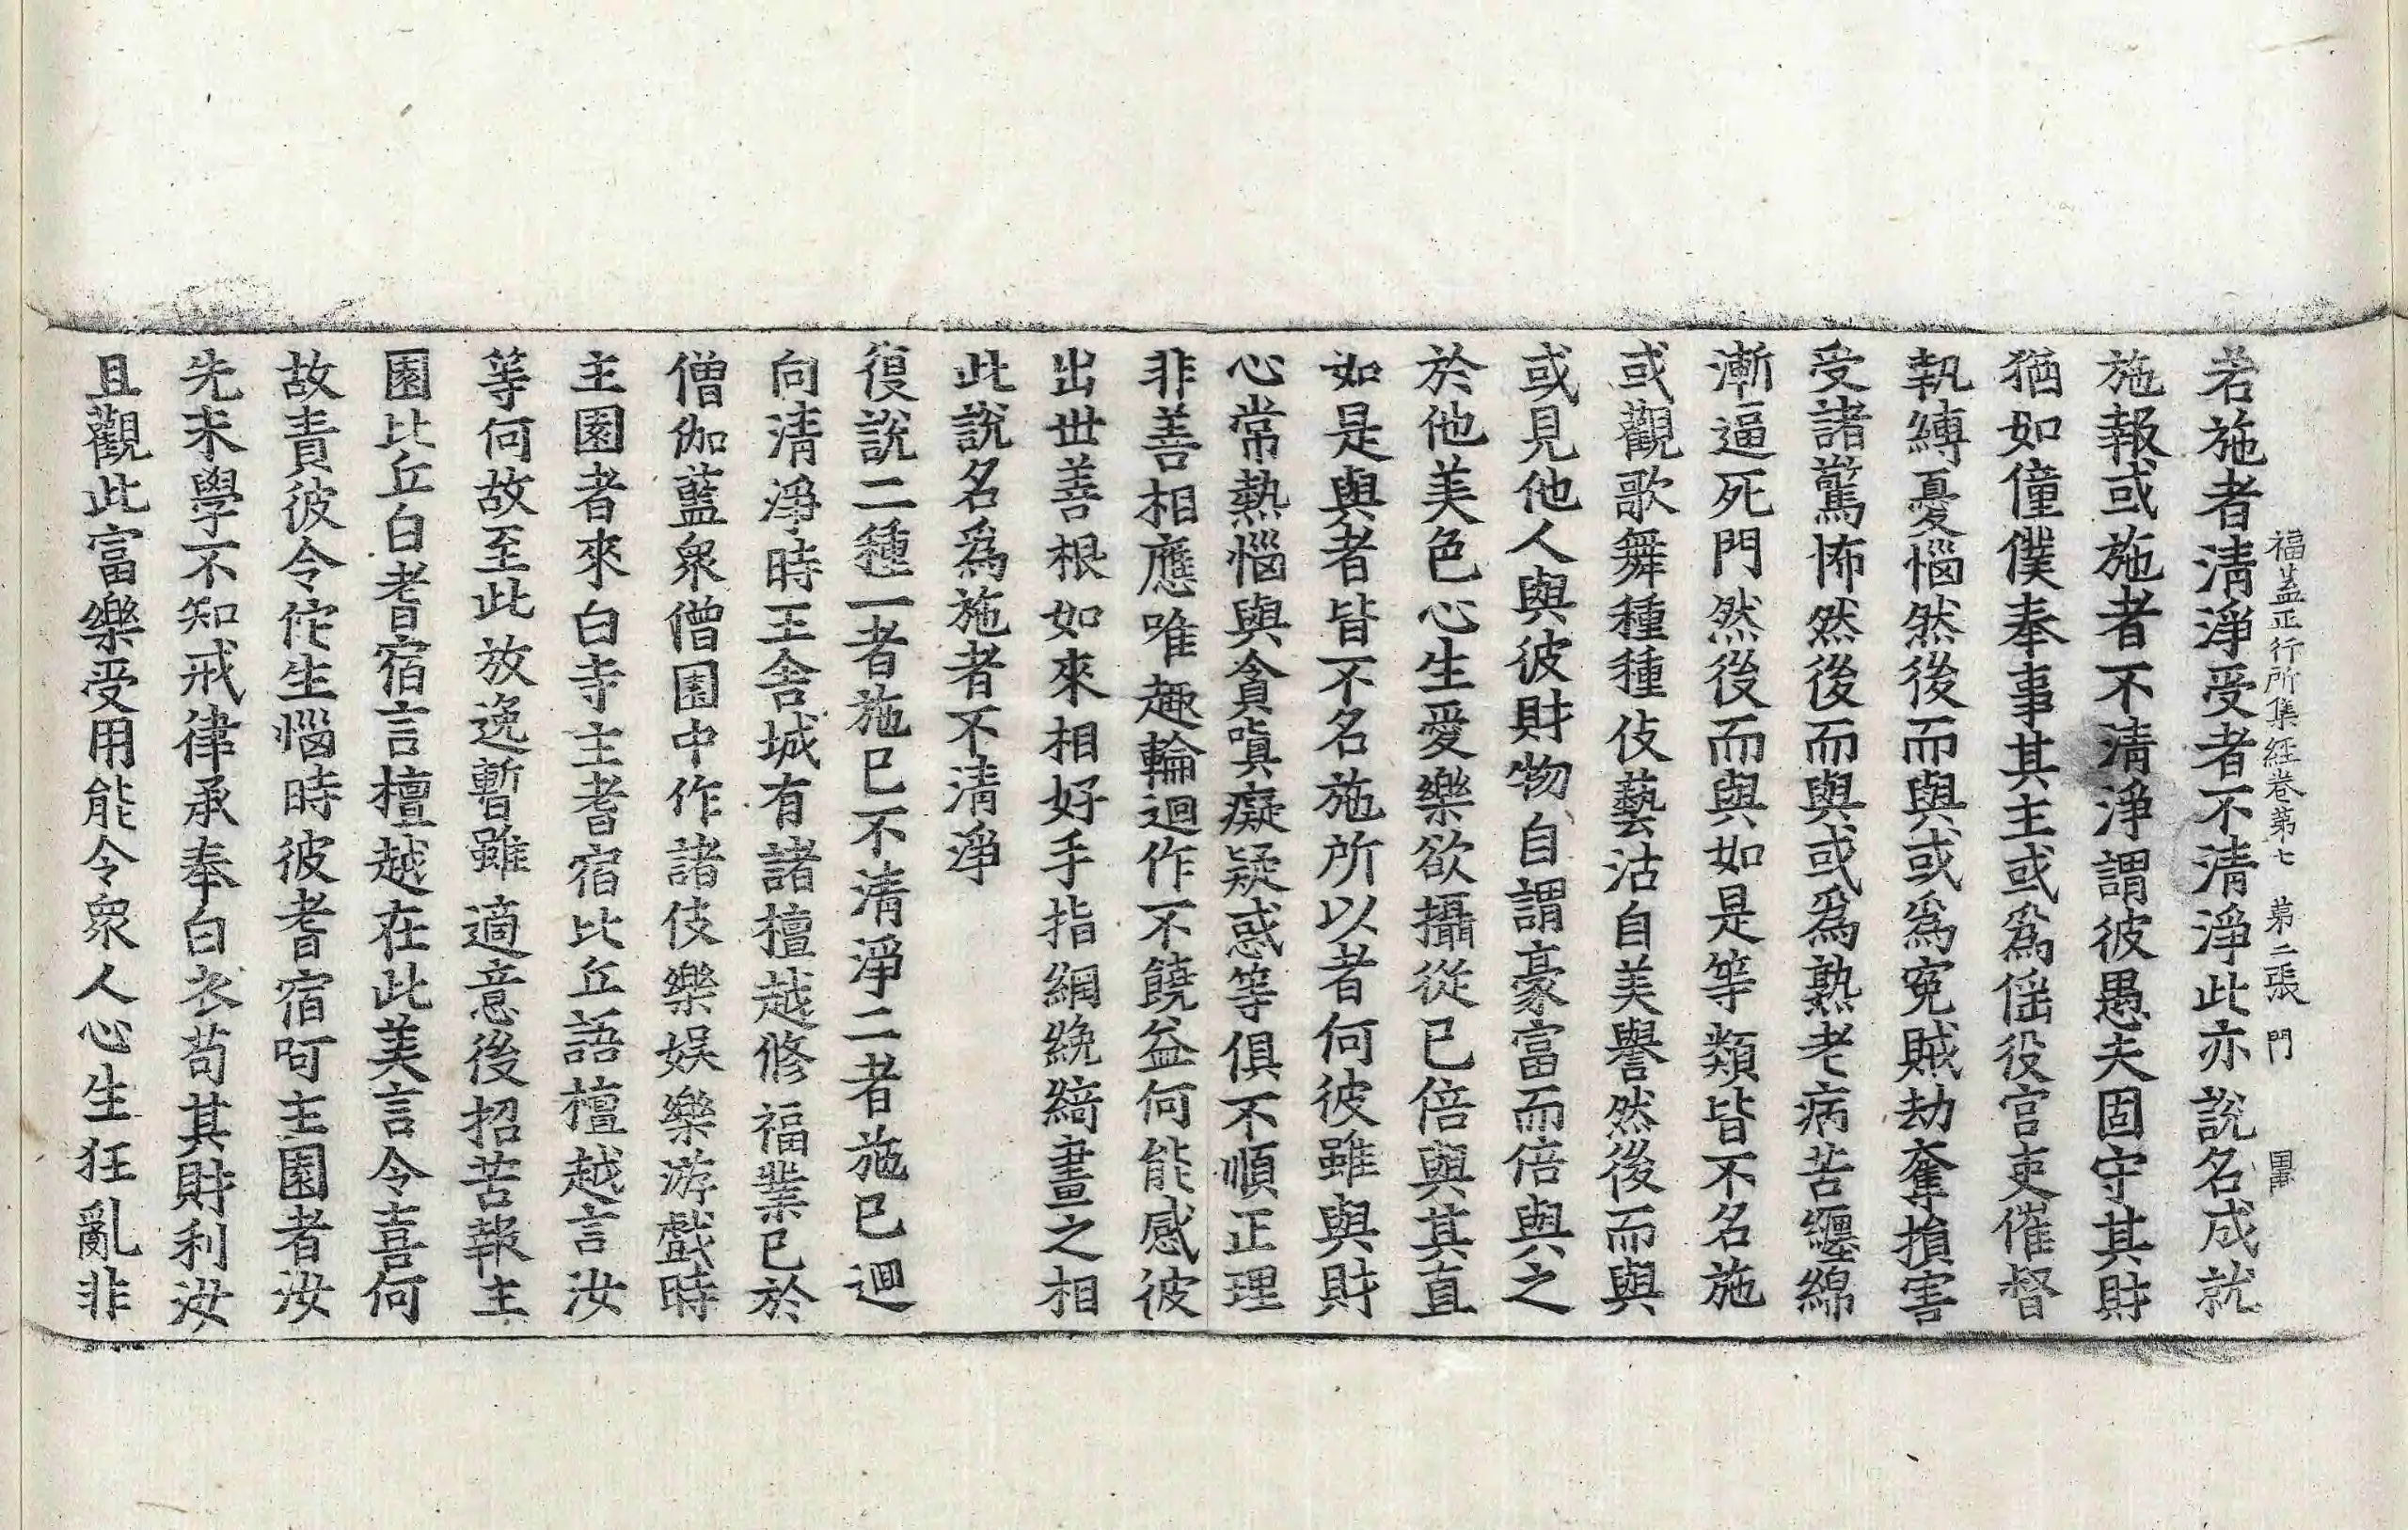 福盖正行所集経卷第七　第二張　門
若施者清淨受者不清淨此亦說名成就
施報或施者不清淨謂彼愚夫固守其財
猶如僮僕奉事其主或爲傜役官吏催督
執縛憂惱然後而與或爲寃賊劫奪損害
受諸驚怖然後而與或爲熟老病苦纏綿
漸逼死門然後而與如是等類皆不名施
或觀歌舞種種伎藝沽自美譽然後而與
或見他人與彼財物自謂豪富而倍與之
於他美色心生愛樂欲攝從已倍與其直
如是與者皆不名施所以者何彼雖與財
心常熱惱與貪嗔癡疑惑等俱不順正理
非善相應唯趣輪迴作不饒益何能感彼
出世善根如來相好手指網綩綺畫之相
此說名爲施者不清淨
復說二種一者施已不清淨二者施已迴
向清淨時王舍城有諸檀越修福業已於
僧伽藍衆僧園中作諸伎樂娛樂游戲時
主園者來白寺主耆宿比丘語檀越言汝
等何故至此放逸暫雖適意後招苦報主
園比丘白耆宿言檀越在此美言令喜何
故責彼令佗生惱時彼耆宿呵主園者汝
先未學不知戒律承奉白衣苟其財利汝
且觀此富樂受用能令衆人心生狂亂非